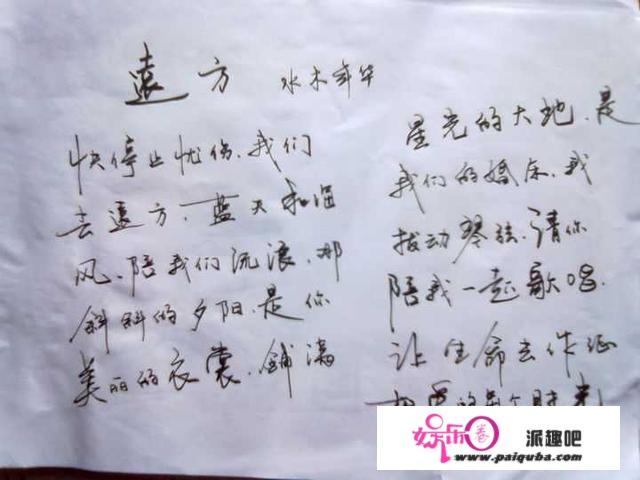 遠方 水木年华
快停止忧伤、我们
去遠方、蓝天和湿
风、陪我们流浪、那
斜斜的夕阳、是你
美丽的衣裳、铺满
星光的大地、是
我们的婚床、我
拨动琴弦、请你
陪我一起歌唱.
让生命去作证
的每个时刻
娱乐卷 派趣吧
www.paiquba.com